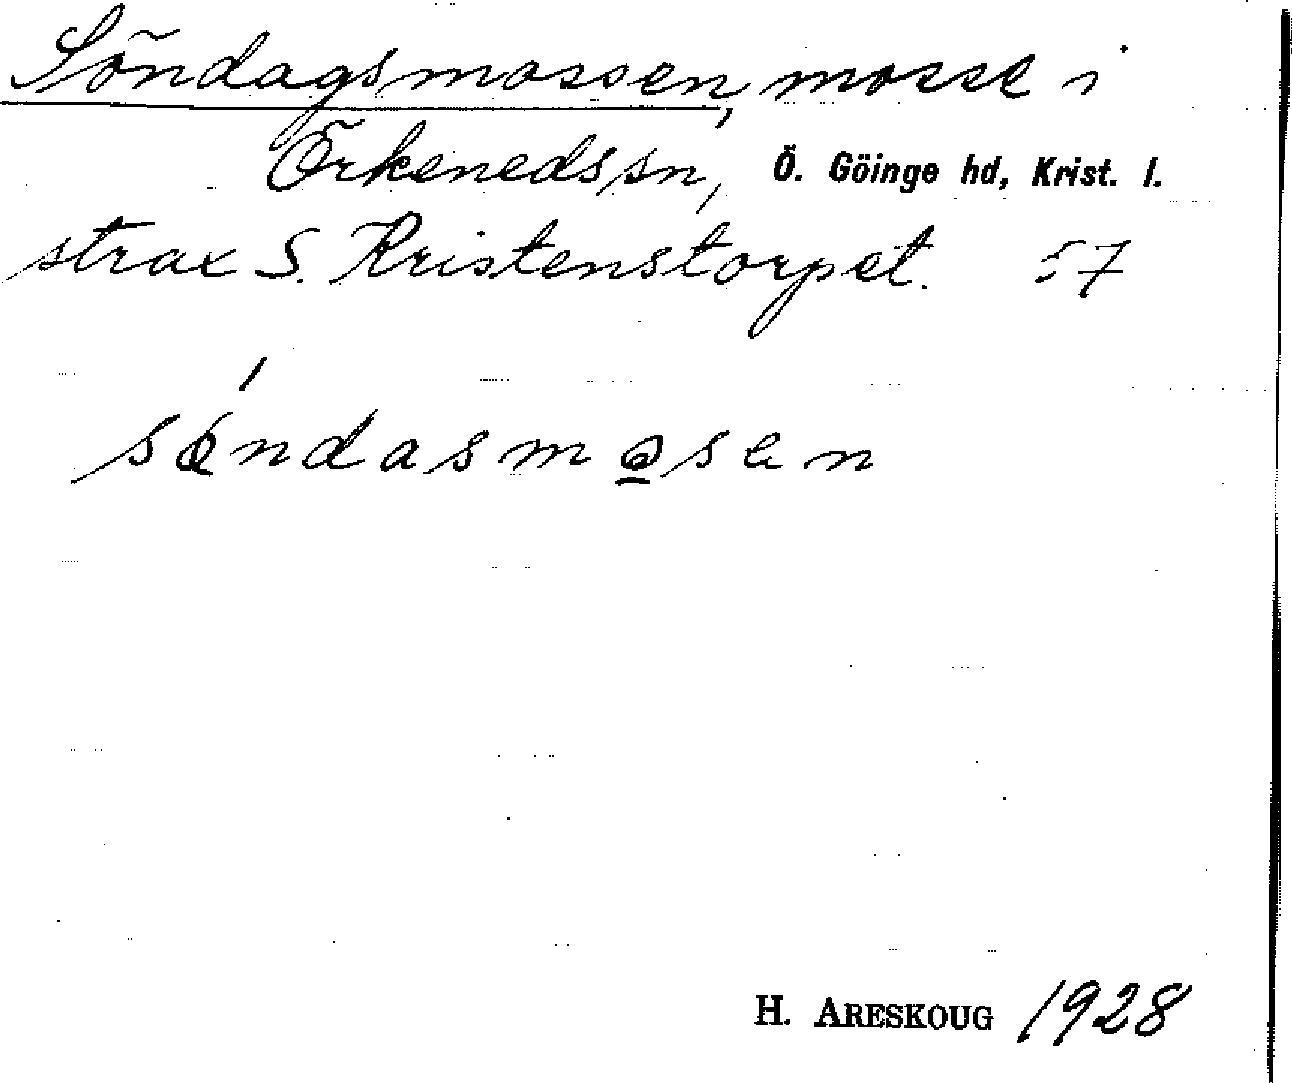 Söndagsmossen, mosse i
Örkeneds sn, Ö. Göinge hd, Krist. l.
strax S. Kristenstorpet. 57
söndasmosen
H. ARESKOUG 1928